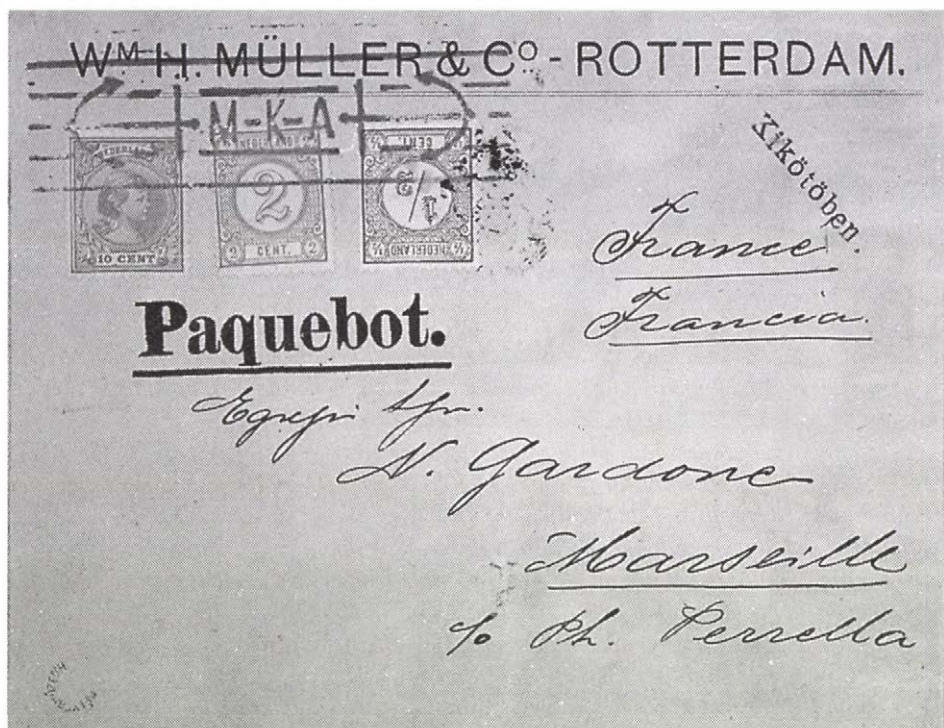 WM H. MÜLLER & Co - ROTTERDAM.
M-K-A
NEDERLAND
10 CENT
2
2 CENT. 2
CENT.
1/2
NEDERLAND
Kikötöben
France.
Francia.
Paquebot.
N. Gardone
Marseille
c/o Ph. Perrella